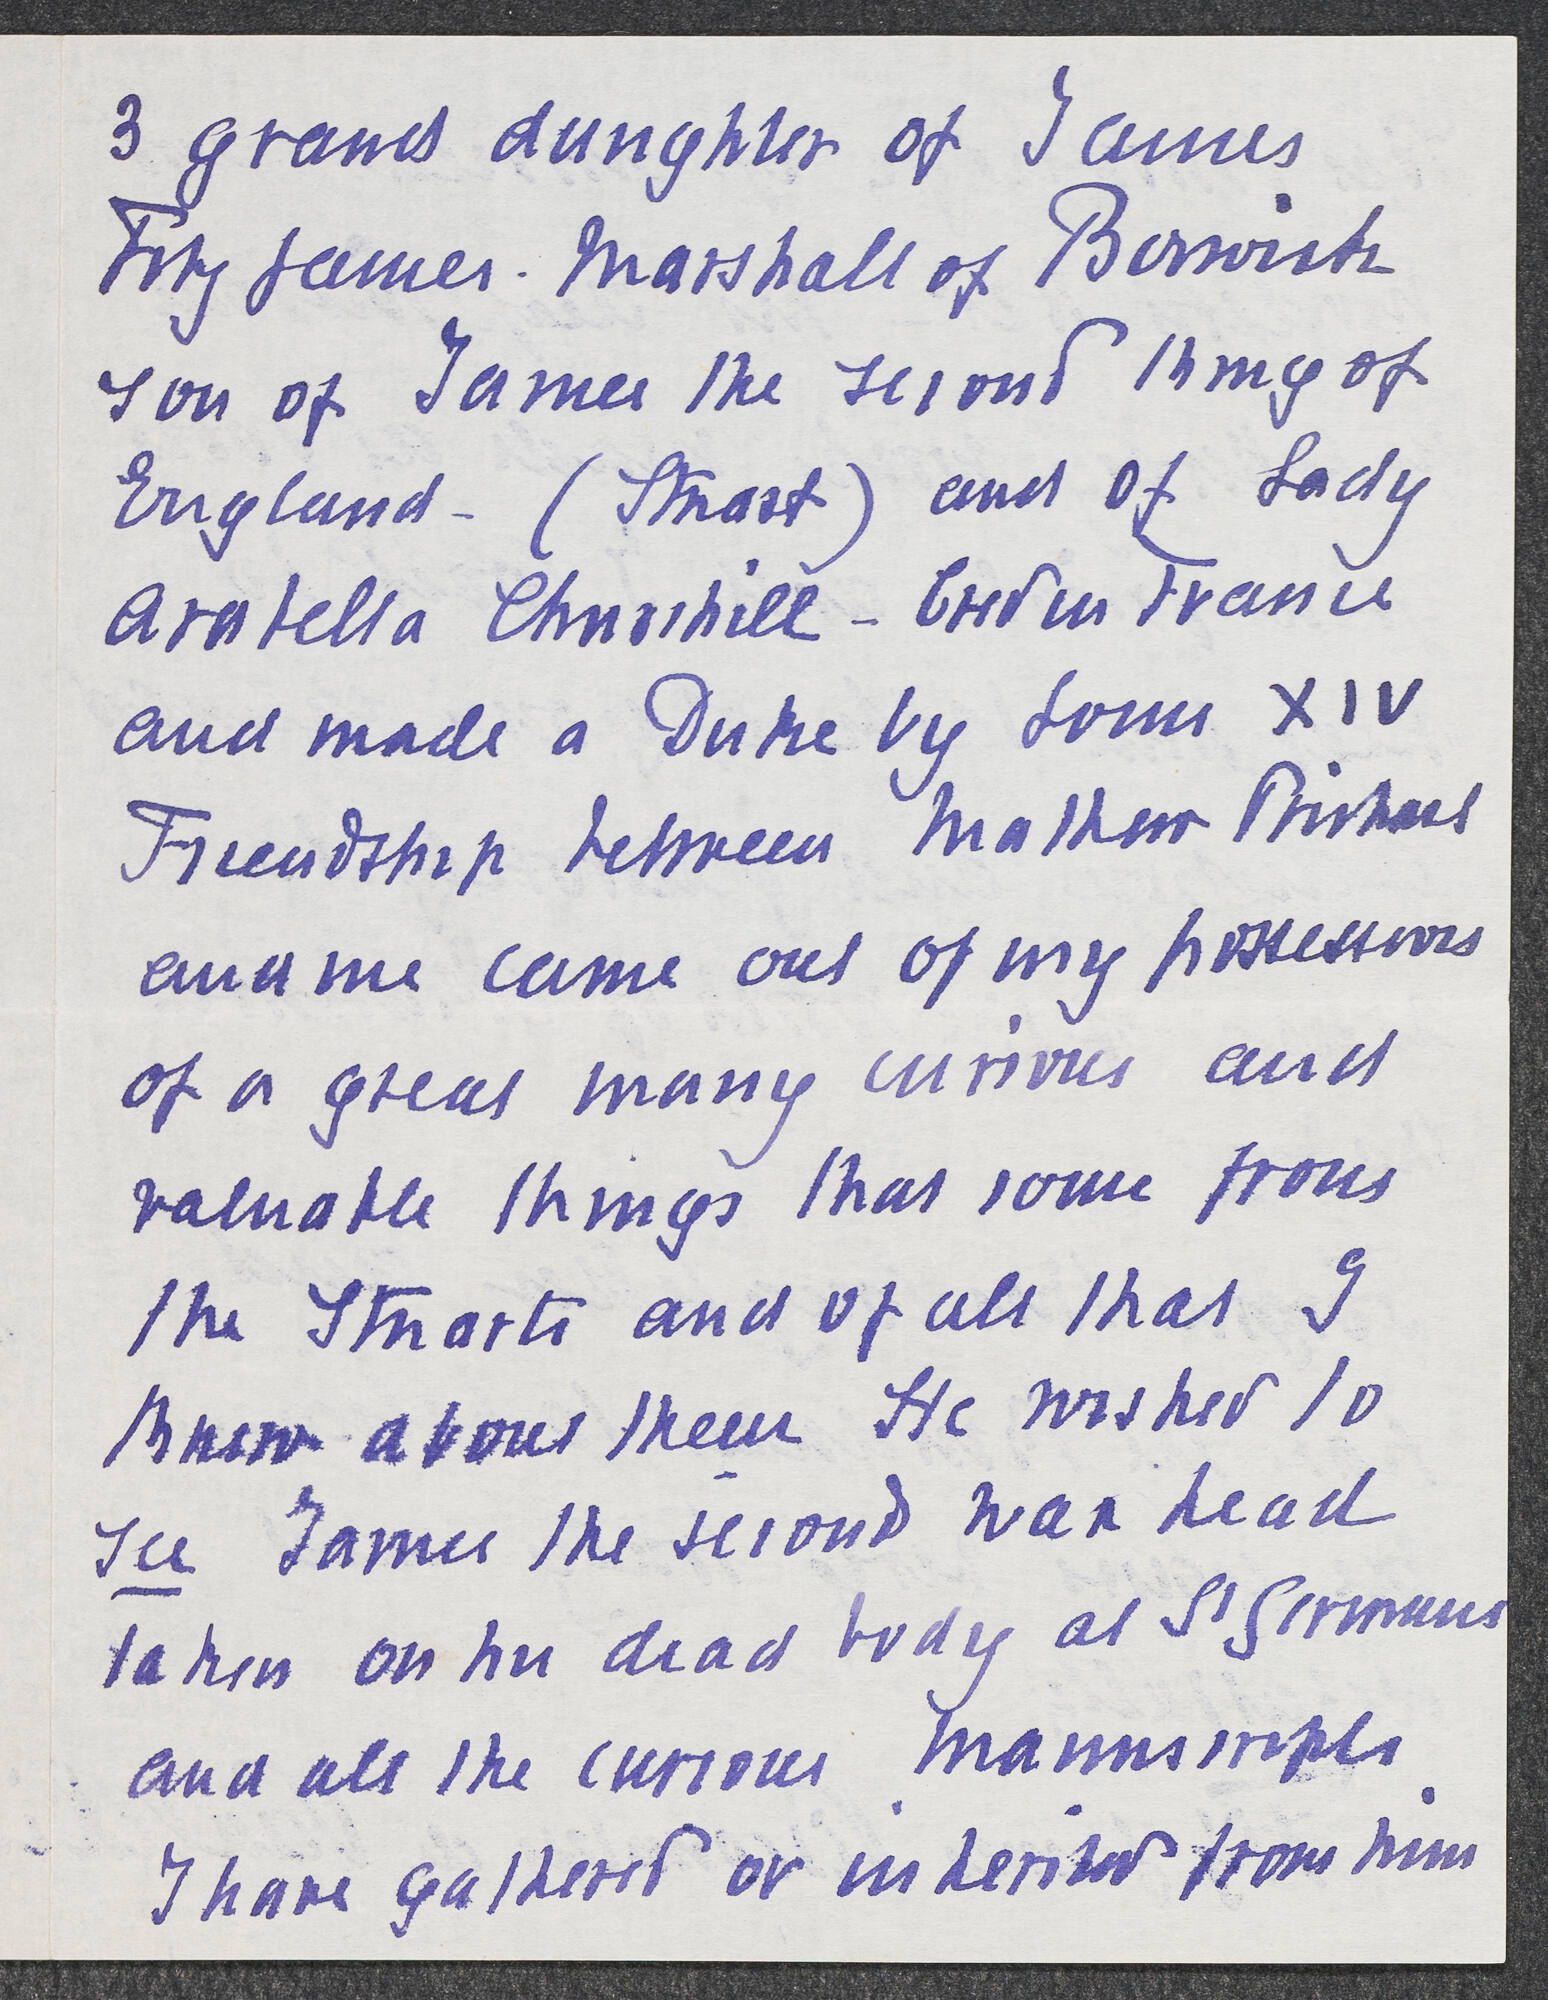 3 grand daughter of James
Fitz James. Marshall of Berwick
son of James the second King of
England - (Stuart) and of Lady
Arabella Churchill - bred in France
and made a Duke by Louis XIV
Friendship between Mathew Prichard
and me came out of my possessions
of a great many curious and
valuable things that come from
the Stuarts and of all that I
know about them He wished to
see James the second wax head
taken on his dead body at St Germains
and all the curious manuscripts
I have gathered or inherited from him